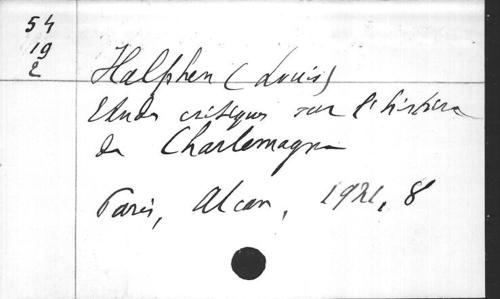 54
19
2
Halphen (Louis)
Etudes critiques sur l'histoire
de Charlemagne
Paris, Alcan, 1921, 8